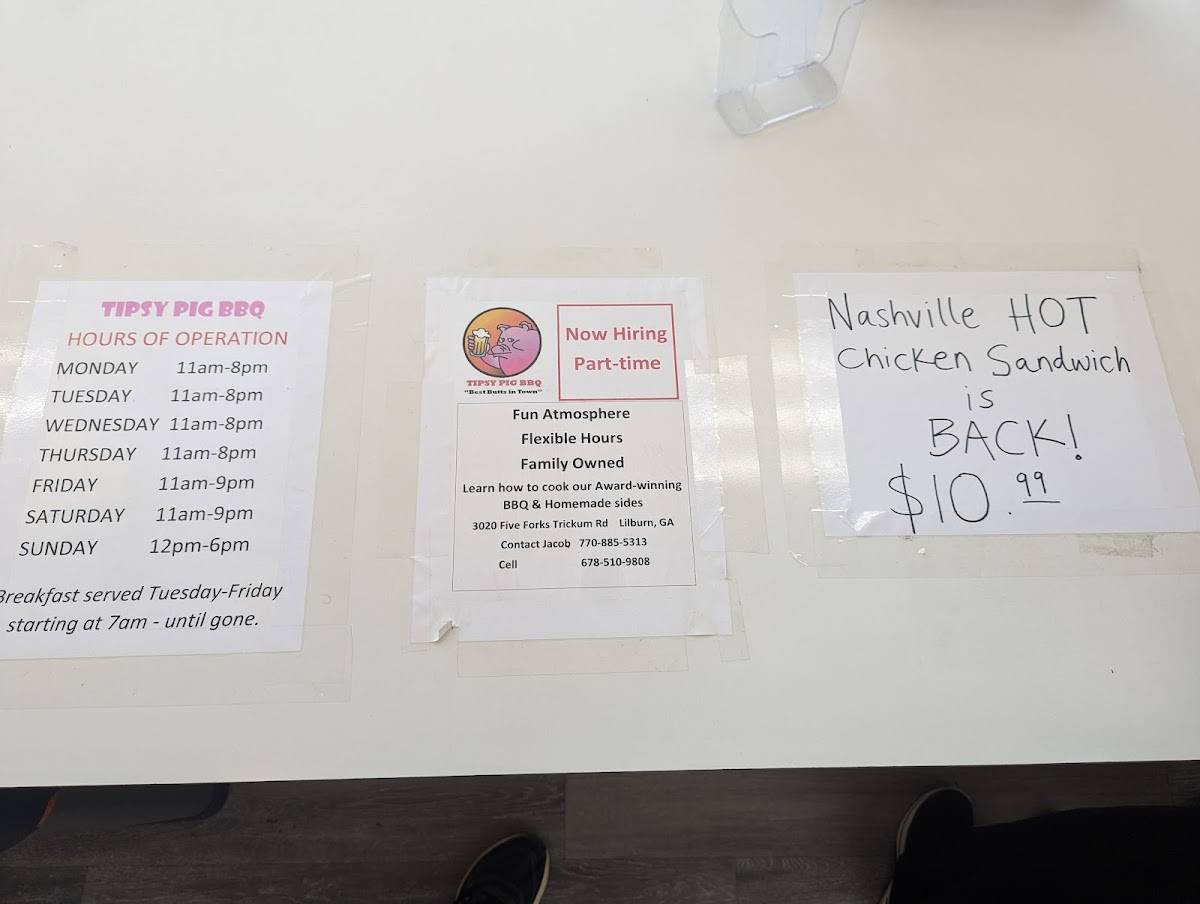 TIPSY PIG BBQ
HOURS OF OPERATION
MONDAY 11am-8pm
TUESDAY 11am-8pm
WEDNESDAY 11am-8pm
THURSDAY 11am-8pm
FRIDAY 11am-9pm
SATURDAY 11am-9pm
SUNDAY 12pm-6pm
Breakfast served Tuesday-Friday
starting at 7am - until gone.
TIPSY PIG BBQ
"Best Butts in Town"
Now Hiring
Part-time
Fun Atmosphere
Flexible Hours
Family Owned
Learn how to cook our Award-winning
BBQ & Homemade sides
3020 Five Forks Trickum Rd Lilburn, GA
Contact Jacob 770-885-5313
Cell 678-510-9808
Nashville HOT
Chicken Sandwich
is
BACK!
$10.99